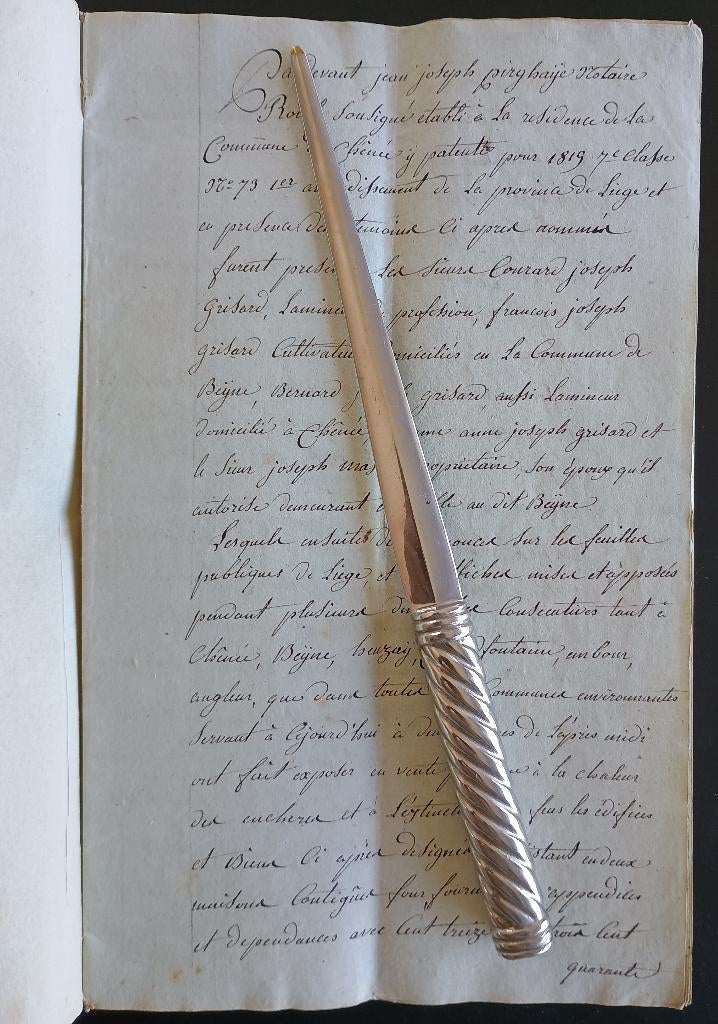 Pardevant jean joseph pirghaÿe Notaire
Roïal Sousigné etabli à La residence de La
Commune Chênée ÿ patenté pour 1819 7e Classe
No 73 1er ar dissement de La province de Liege et
en presence de temoins Ci apres nommés
furent prese Les Sieurs Conrard joseph
grisard, Lamine profession, francois joseph
grisard Cultivateu miciliés en La Commune de
Beÿne, Bernard j grisard, aussi Lamineur
domicilié à Chênée, me anne joseph grisard et
le Sieur joseph mas opriétaire, son époux qu'il
autorise demeurant e ble au dit Beÿne.
Lesquels ensuite de onces sur les feuilles
publiques de Liege, et ffiches mises et apposées
pendant plusieurs di es Consecutives tant à
Chênée, Beÿne, heuzaÿ, dfontaine, embour,
angleur, que dans toutes Communes environnantes
Servant à Cejourd'hui à deu es de L'après midi
ont fait exposer en vente e à la chaleur
des encheres et à L'extincti feus les edifices
et Biens Ci après designés stant en deux
maisons Contigües four fourni appendices
et dependances avec Cent treize trois Cent
quarante